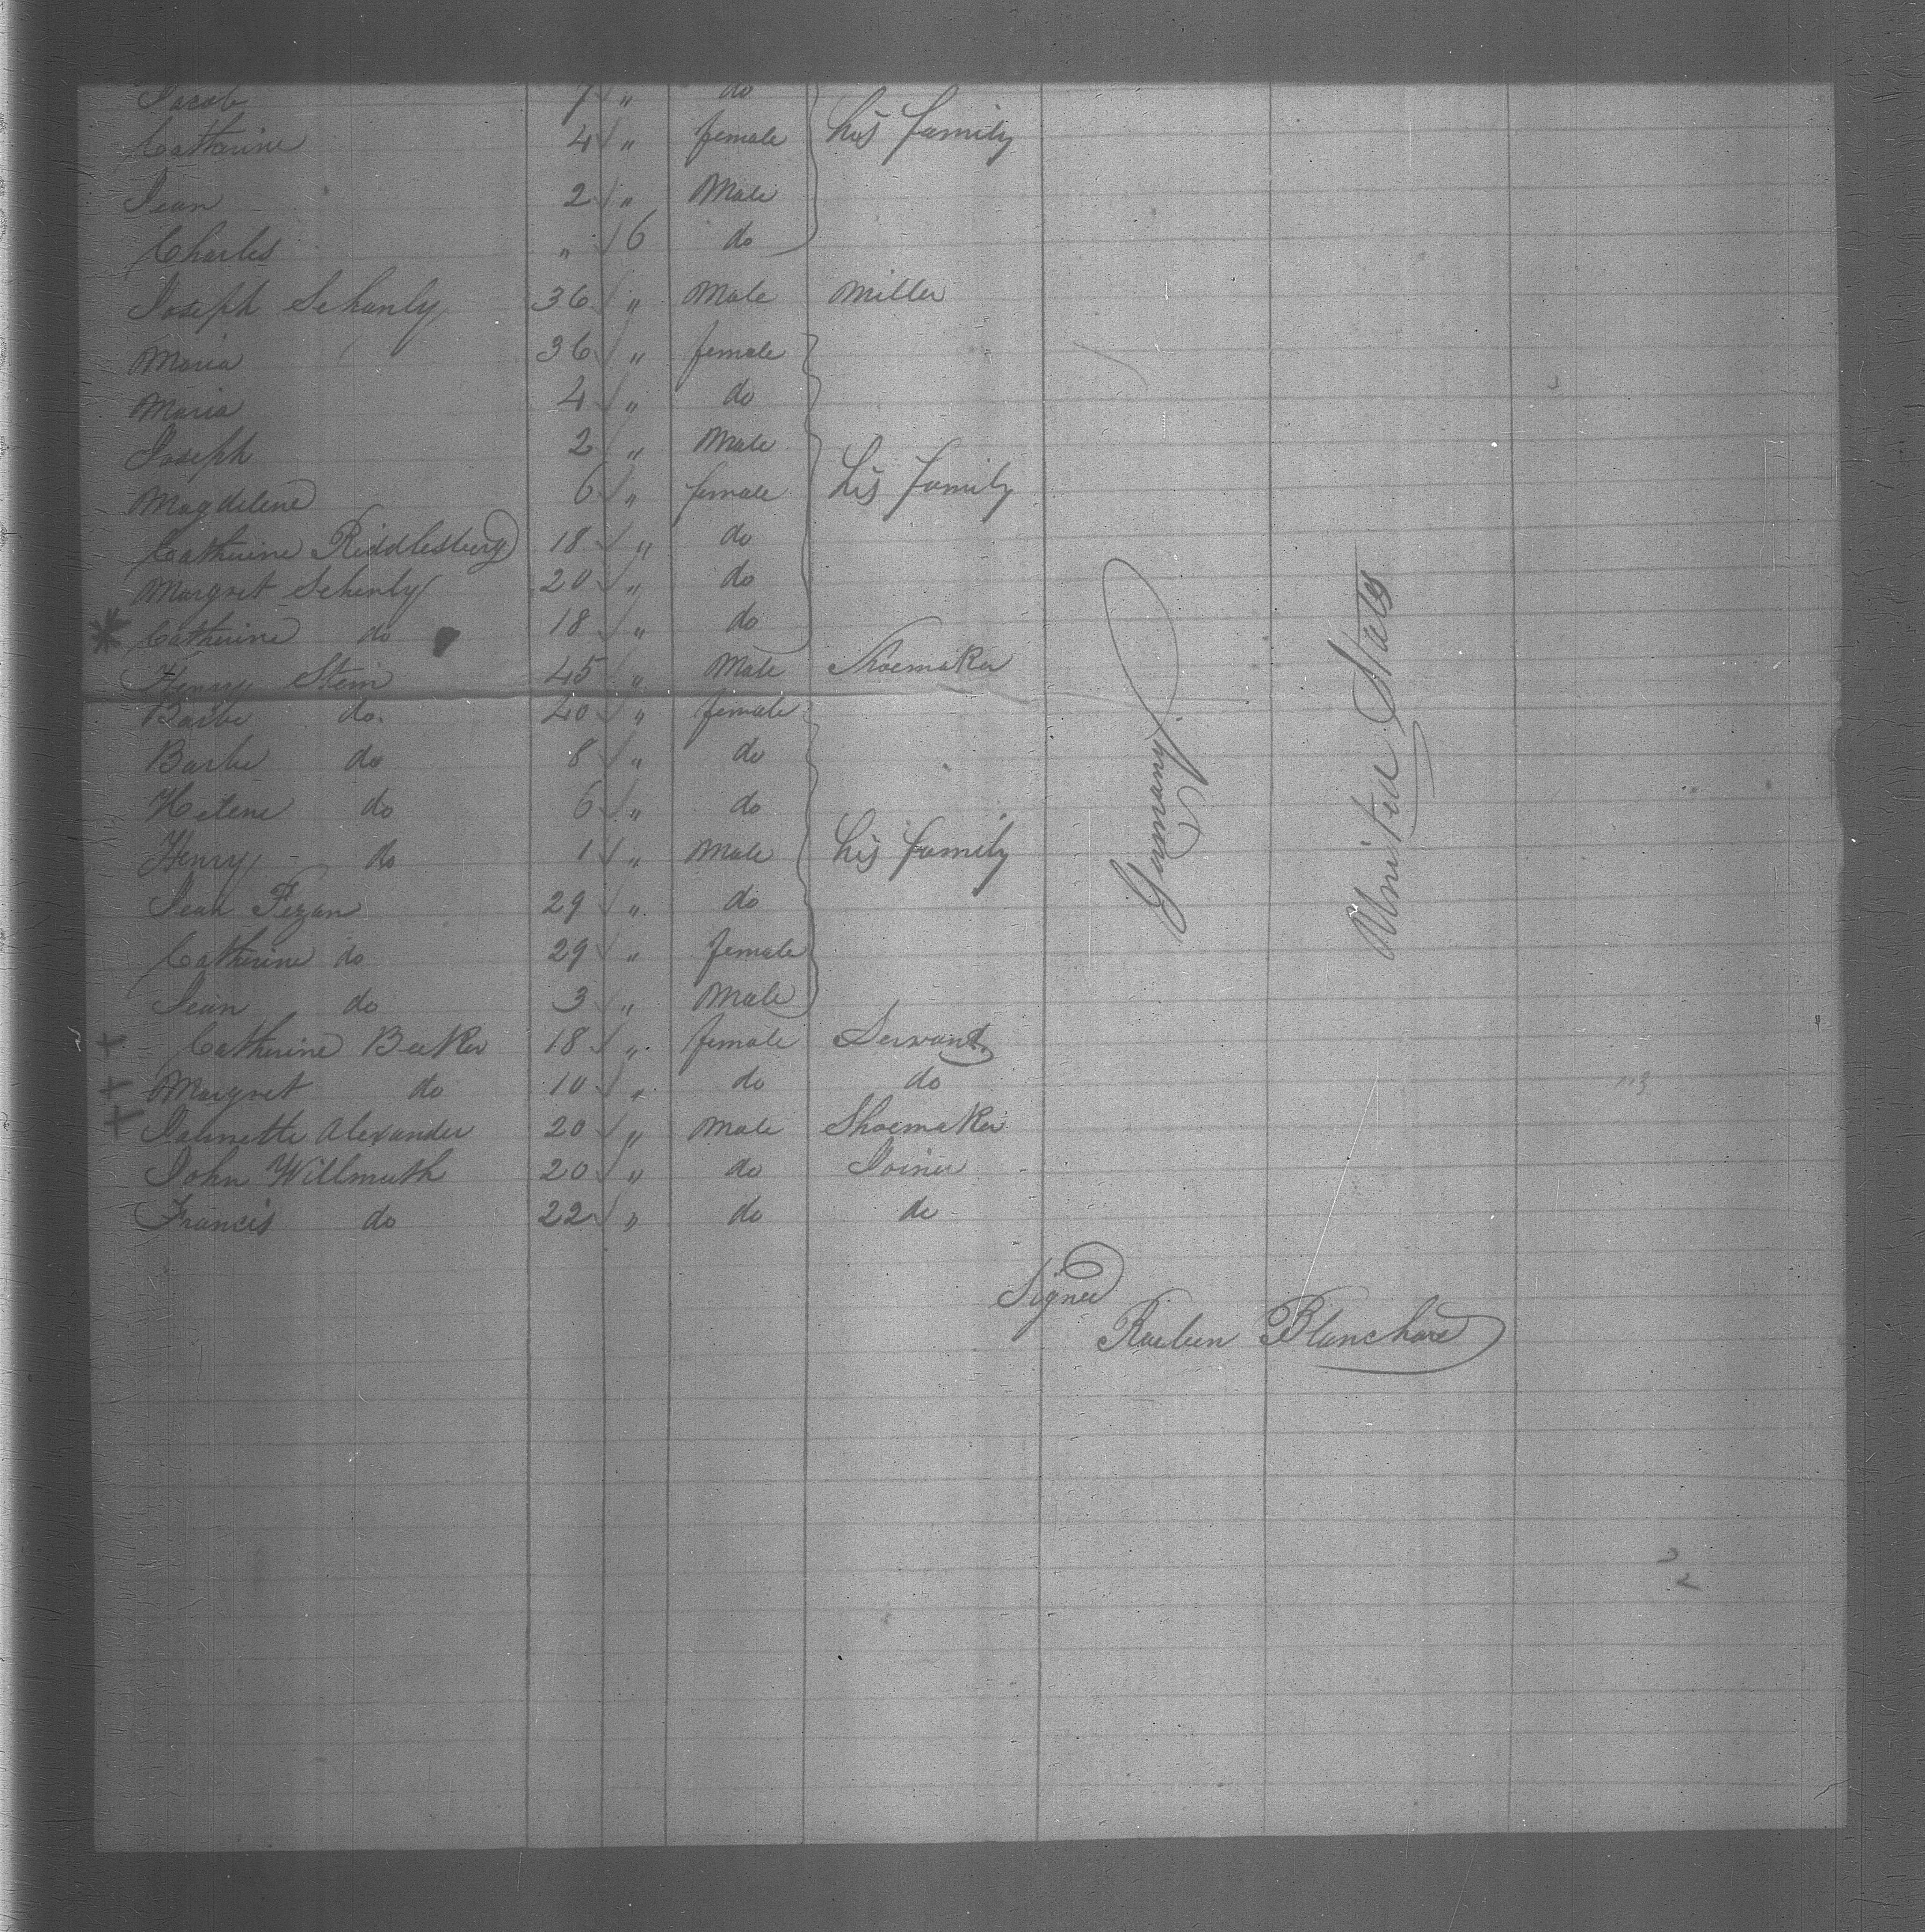 Jacob 7 " do
Catherine 4 " female his family
Jean 2 " Male
Charles " 6 do
Joseph Schanly 36 " Male Miller
Maria 36 " female
Maria 4 " do
Joseph 2 " Male
Magdelene 6 " female his family
Catherine Riddlesburg 18 " do
Margret Schenly 20 " do
Catherine do 18 " do
Henry Stein 45 " Male Shoemaker
Barbe do. 40 " female
Barbe do 8 " do
Helene do 6 " do
Henry do 1 " Male his family
Jean Pezan 29 " do
Catherine do 29 " female
Jean do 3 " Male
+ Catherine Beeker 18 " female Servant
+ Margret do 10 " do do
+ Jalmette Alexander 20 " Male Shoemaker
John Willmuth 20 " do Joiner
Francis do 22 " do do
Germany
United States
Signed
Reuben Blanchard